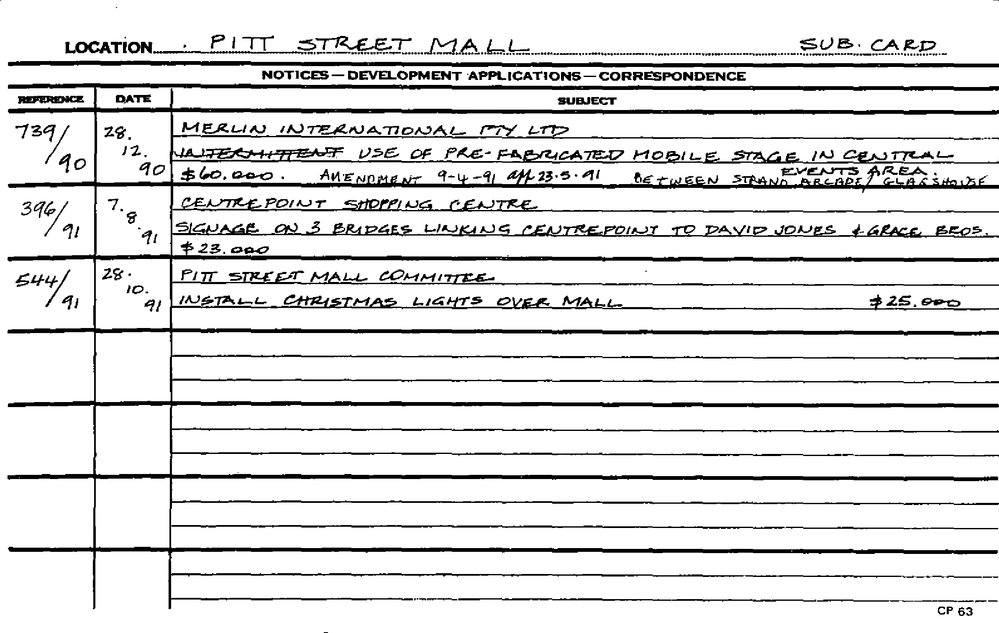 LOCATION . PITT STREET MALL SUB. CARD
NOTICES—DEVELOPMENT APPLICATIONS—CORRESPONDENCE
REFERENCE DATE SUBJECT
739/90 28.12.90 MERLIN INTERNATIONAL PTY LTD
INTERMITTENT USE OF PRE-FABRICATED MOBILE STAGE IN CENTRAL
EVENTS AREA.
$60.000. AMENDMENT 9-4-91 app 23.5.91 BETWEEN STRAND ARCADE/ GLASSHOUSE
396/91 7.8.91 CENTREPOINT SHOPPING CENTRE
SIGNAGE ON 3 BRIDGES LINKING CENTREPOINT TO DAVID JONES & GRACE BROS.
$23.000
544/91 28.10.91 PITT STREET MALL COMMITTEE
INSTALL CHRISTMAS LIGHTS OVER MALL $25.000
CP 63